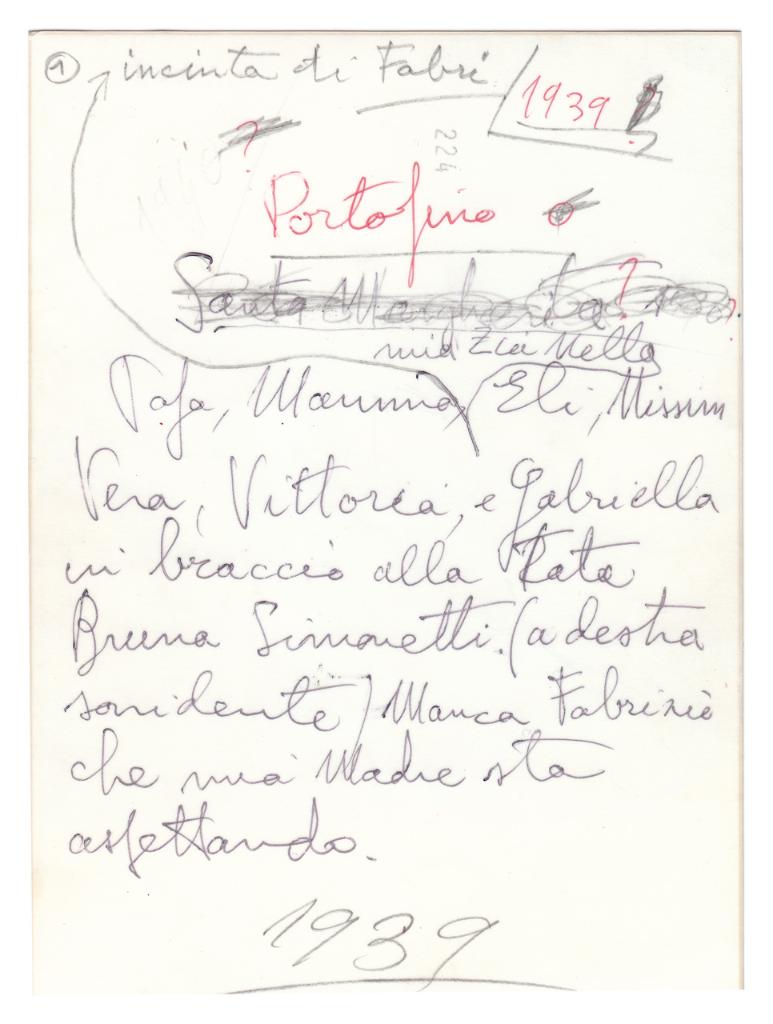 1 incinta di Fabri
1939 ?
?
224
Portofino
Santa Margherita ?
mia Zia Nella
Papa, Mamma, Eli, Missim
Vera, Vittoria, e Gabriella
in braccio alla Tata
Bruna Simonetti. (a destra
sorridente) Manca Fabrizio
che mia Madre sta
aspettando.
1939